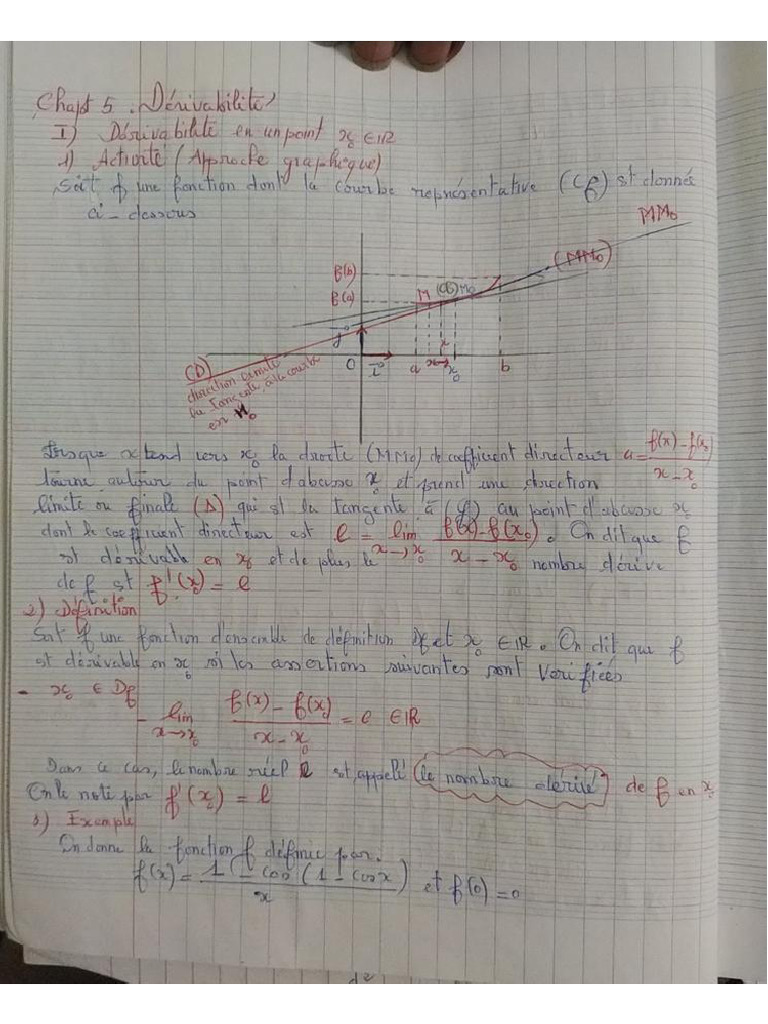 Chapt 5 : Dérivabilité
I) Dérivabilité en un point x₀ ∈ IR
1) Activité (Approche graphique)
Soit f une fonction dont la courbe représentative (Cf) est donnée
ci-dessous
MM₀
(MM₀)
f(b)
f(a)
M (Cf) M₀
j
O i a x→x₀ b
x
(D)
direction limite
la tangente à la courbe
en M₀
lorsque x tend vers x₀ la droite (MM₀) de coefficient directeur a = f(x) - f(x₀) / x - x₀
tourne autour du point d'abscisse x₀ et prend une direction
limite ou finale (Δ) qui est la tangente à (Cf) au point d'abscisse x₀
dont le coefficient directeur est l = lim x→x₀ f(x) - f(x₀) / x - x₀ . On dit que f
est dérivable en x₀ et de plus le nombre dérivé
de f est f'(x₀) = l
2) Définition
Soit f une fonction d'ensemble de définition Df et x₀ ∈ IR. On dit que f
est dérivable en x₀ si les assertions suivantes sont vérifiées
- x₀ ∈ Df
- lim x→x₀ f(x) - f(x₀) / x - x₀ = l ∈ IR
Dans ce cas, le nombre réel l est appelé (le nombre dérivé) de f en x₀
On le note par f'(x₀) = l
3) Exemple
On donne la fonction f définie par :
f(x) = 1 - cos (1 - cos x) / x et f(0) = 0